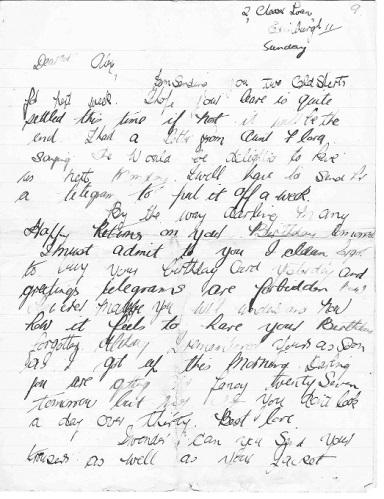 2, Clovis Loan
Edinburgh 11
Sunday
9
Dearest
I am Sending you Two Cold Shirts
for next week. I hope your leave is quite
settled this time if not it will be the
end I had a letter from Aunt Flora
saying She would be delighted to have
us next Monday I will have to Send her
a telegram to put it off a week.
By the way darling Many
Happy Returns on your Birthday tomorrow
I must admit to you I clean forgot
to buy your birthday Card yesterday and
greetings telegrams are forbidden
maybe you will understand now
how it feels to have your Birthday
forgotten I remembered yours as soon
as I got up this Morning Darling
you are getting fancy twenty Seven
tomorrow but you don't look
a day over thirty. Best love.
I wonder can you Send your
trousers as well as your Jacket